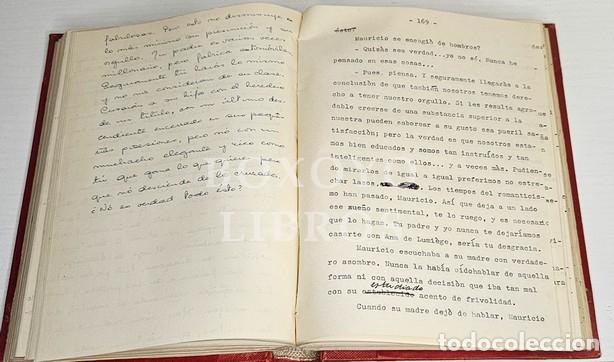 fabulosas. Pero esto no disminuye en
lo más mínimo su presunción y su
orgullo. Tu padre es varias veces
millonario, pero fabrica automóviles.
Seguramente tú harás lo mismo
y no nos consideran de su clase.
Casarán a su hija con el heredero
de un título, con un último des-
cendiente encerrado en sus peque-
ñas posesiones, pero nó con un
muchacho elegante y rico como
tú que gana lo que quiere pero
que nó desciende de los cruzados.
¿No es verdad todo esto?
- 169 -
Mauricio se encogió de hombros?
- Quizás sea verdad...yo no sé. Nunca he
pensado en esas cosas...
- Pues, piensa, Y seguramente llegarás a la
conclusión de que también nosotros tenemos dere-
cho a tener nuestro orgullo. Si les resulta agra-
dable creerse de una substancia superior a la
nuestra pueden saborear a su gusto esa pueril sa-
tisfacción; pero la verdad es que nosotros esta-
mos bien educados y somos tan instruídos y tan
inteligentes como ellos... y a veces más. Pudien-
do tratarlos de igual a igual preferimos no estre-
char lazos. Los tiempos del romanticis-
mo han pasado, Mauricio. Así que deja a un lado
ese sueño sentimental, te lo ruego, y es necesario
que lo hagas. Tu padre y yo nunca te dejaríamos
casarte con Ana de Lumiège, sería tu desgracia.
Mauricio escuchaba a su madre con verdade-
ro asombro. Nunca la había oídohablar de aquella
forma ni con aquella decisión que iba tan mal
estudiado
con su establecido acento de frivolidad.
Cuando su madre dejó de hablar, Mauricio
BOXOYO
LIBROS
todocoleccion